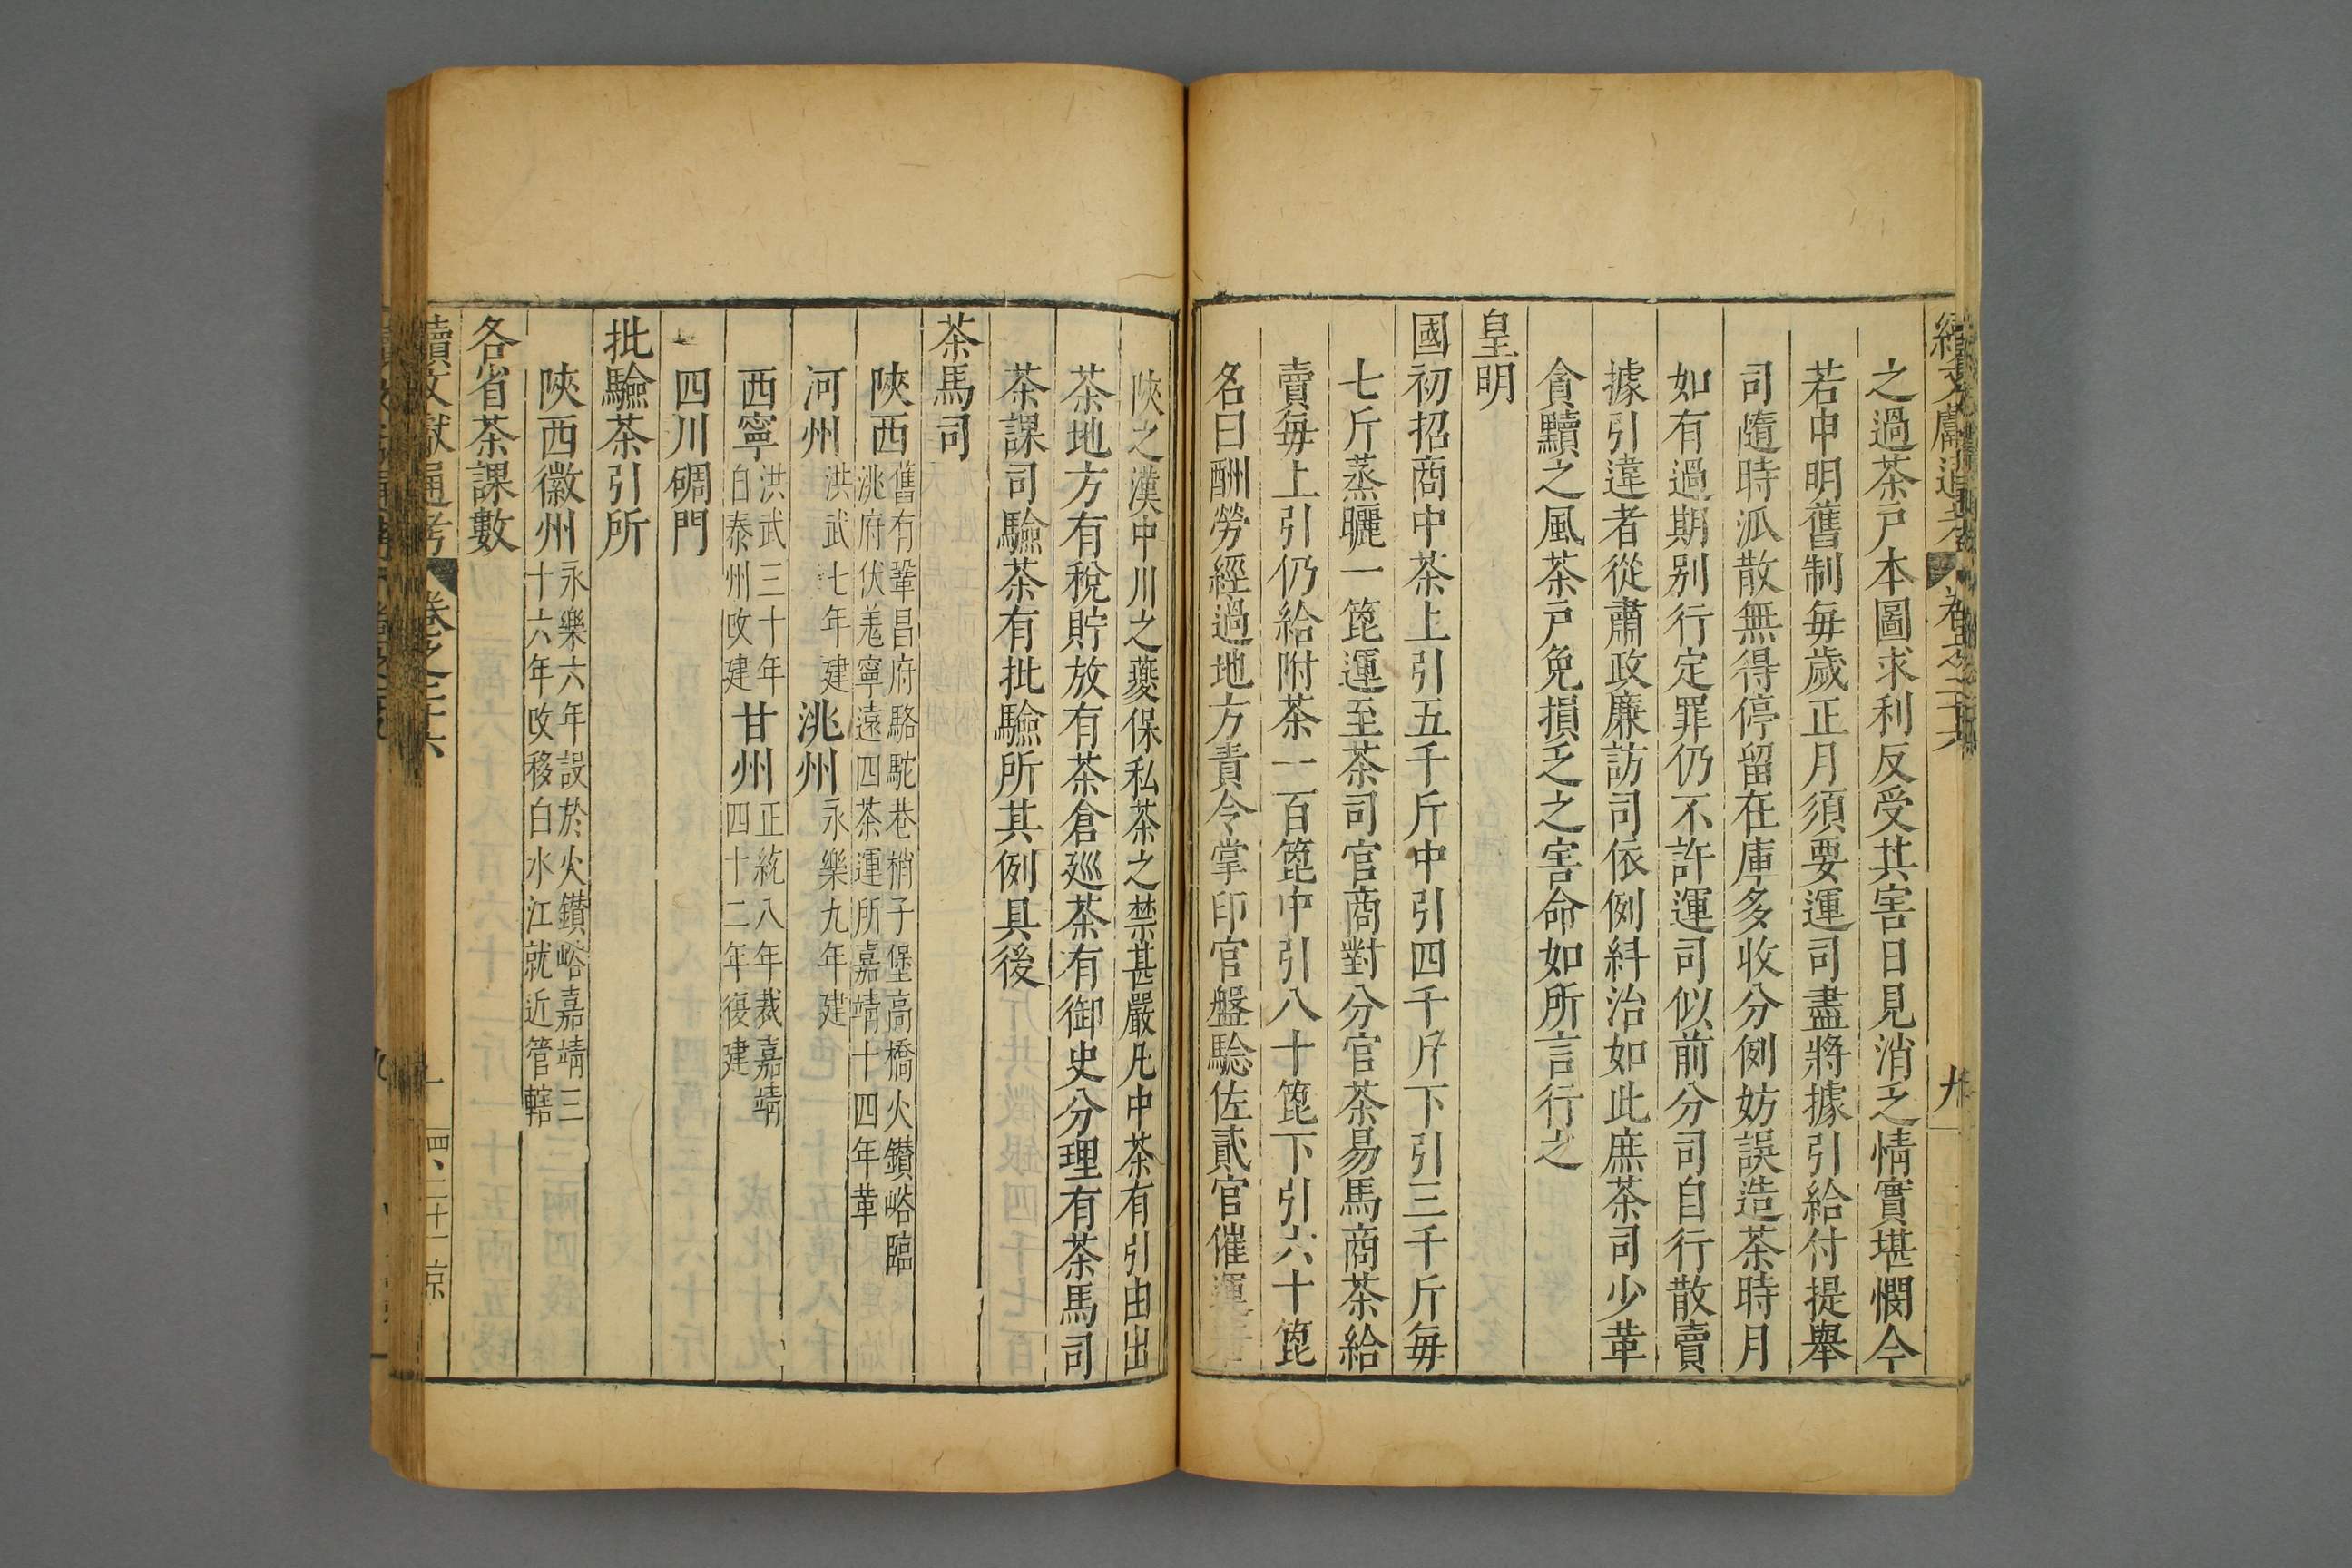 之過茶戸本圖求利反受其害日見消乏情實堪憫今
若申明舊制每歲正月須要運司盡將據引給付提舉
司隨時派散無得停留在庫多收分例妨誤造茶時月
如有過期别行定罪仍不許運司似前分司自行散賣
據引違者從肅政廉訪司依例糾治如此庶茶司少革
貪黷之風茶戸免損乏之害命如所言行之
皇明
國初招商中茶上引五千斤中引四千斤下引三千斤每
七斤蒸曬一篦運至茶司官商對分官茶易馬商茶給
賣每上引仍給附茶一百篦中引八十篦下引六十篦
名曰酬勞經過地方責令掌印官盤驗佐貳官催運
陝之漢中川之夔保私茶之禁甚嚴凡中茶有引由出
茶地方有稅貯放有茶倉廵茶有御史分理有茶馬司
茶課司驗茶有批驗所其例具後
茶馬司
陝西舊有鞏昌府駱駝巷梢子堡高橋火鑽峪臨
洮府伏羗寧遠四茶運所嘉靖十四年革
河州洪武七年建 洮州永樂九年建
西寧洪武三十年
自泰州改建甘州正統八年裁嘉靖
四十二年復建
四川碉門
批驗茶引所
陝西徽州永樂六年設於火鑽峪嘉靖三
十六年改移白水江就近管轄
各省茶課數
續文獻通考 卷之二十六